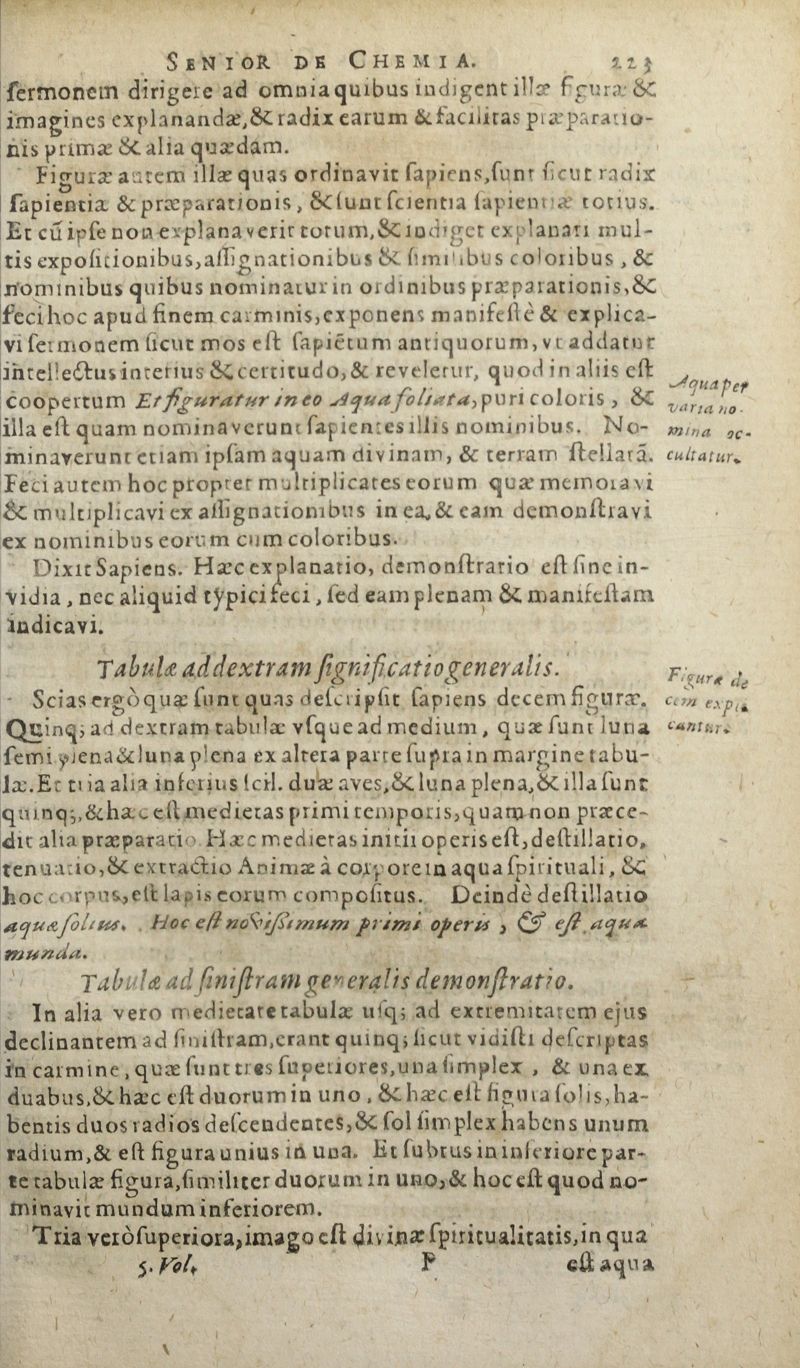 SENIOR DE CHEMIA. 223
ſermonem dirigere ad omnia quibus indigent illæ figuræ &
imagines explanandæ, & radix earum & facilitas præparatio-
nis primæ & alia quædam.
Figuræ autem illæ quas ordinavit ſapiens, ſunt ſicut radix
ſapientiæ & præparationis, & ſunt ſcientia ſapientiæ totius.
Et cũ ipſe non explanaverit totum, & indiget explanari mul-
tis expoſitionibus, aſſignationibus & ſimilibus coloribus, &
nominibus quibus nominatur in ordinibus præparationis, &
feci hoc apud finem carminis, exponens manifeſtè & explica-
vi ſermonem ſicut mos eſt ſapiẽtum antiquorum, vt addatur
intellectus interius & certitudo, & reveletur, quod in aliis eſt
coopertum Et figuratur in eo Aqua foliata, puri coloris, &
illa eſt quam nominaverunt ſapientes illis nominibus. No-
minaverunt etiam ipſam aquam divinam, & terram ſtellatã.
Feci autem hoc propter multiplicates eorum quæ memoravi
& multiplicavi ex aſſignationibus in ea, & eam demonſtravi
ex nominibus eorum cum coloribus.
Aqua per
varia no-
mina oc-
cultatur.
Dixit Sapiens. Hæc explanatio, demonſtratio eſt ſine in-
vidia, nec aliquid typici feci, ſed eam plenam & manifeſtam
indicavi.
Tabulæ ad dextram ſignificatio generalis.
Scias ergò quæ ſunt quas deſcripſit ſapiens decem figuræ.
Quinq; ad dextram tabulæ vſque ad medium, quæ ſunt luna
ſemi plena & luna plena ex altera parte ſupra in margine tabu-
læ. Et tria alia inferius ſcil. duæ aves, & luna plena, & illa ſunt
quinq;, & hæc eſt medietas primi temporis, quam non præce-
dit alia præparatio. Hæc medietas initii operis eſt, deſtillatio,
tenuatio, & extractio Animæ à corpore in aqua ſpirituali, &
hoc corpus, eſt lapis eorum compoſitus. Deindè deſtillatio
aquæ folius. Hoc eſt noviſſimum primi operis, & eſt aqua
munda.
Figuræ de
cem expli
cantur.
Tabulæ ad ſiniſtram generalis demonſtratio.
In alia vero medietate tabulæ uſq; ad extremitatem ejus
declinantem ad ſiniſtram, erant quinq; ſicut vidiſti deſcriptas
in carmine, quæ ſunt tres ſuperiores, una ſimplex, & una ex
duabus, & hæc eſt duorum in uno, & hæc eſt figura ſolis, ha-
bentis duos radios deſcendentes, & ſol ſimplex habens unum
radium, & eſt figura unius in una. Et ſubtus in inferiore par-
te tabulæ figura, ſimiliter duorum in uno, & hoc eſt quod no-
minavit mundum inferiorem.
Tria verò ſuperiora, imago eſt divinæ ſpiritualitatis, in qua
5. Vol. P eſt aqua